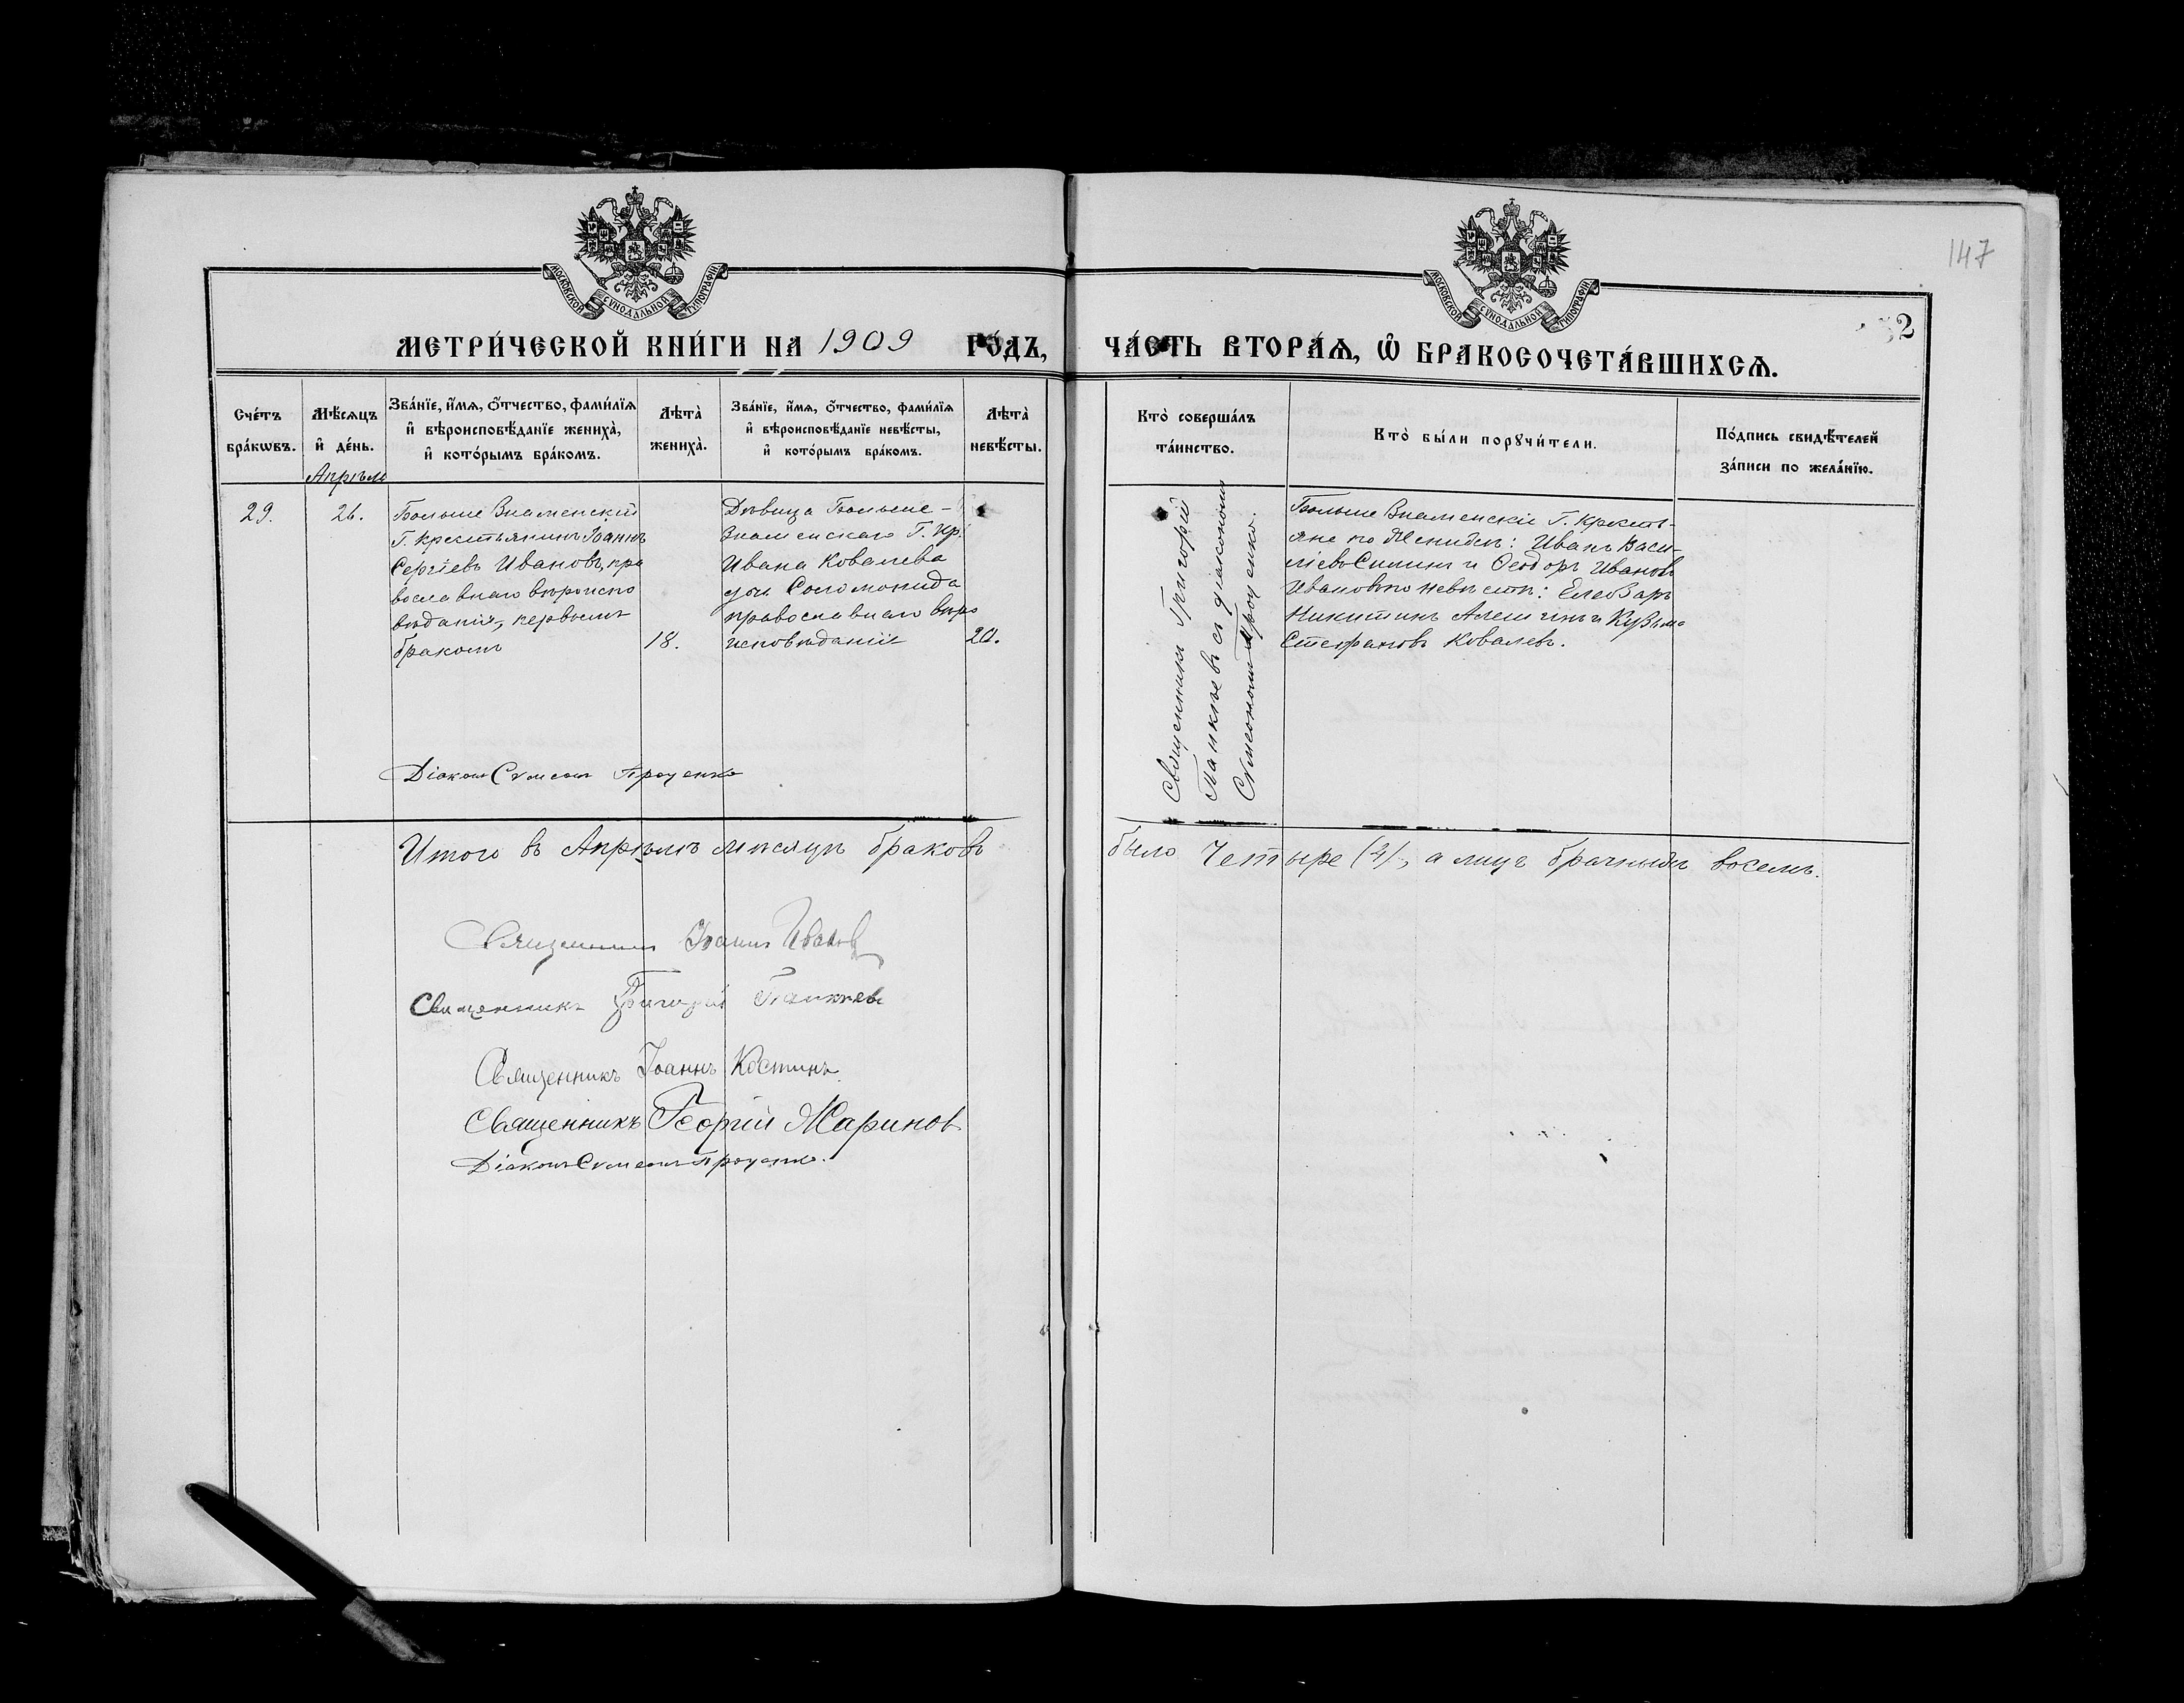 МОСКОВСКОЙ СѴНОДАЛЬНОЙ ТИПОГРАФІИ
МОСКОВСКОЙ СѴНОДАЛЬНОЙ ТИПОГРАФІИ
147
2
МЕТРИ́ЧЕСКОЙ КНИ́ГИ НА 1909 ГО́ДЪ,
ЧА́СТЬ ВТОРА́Ѧ, Ѡ҆ БРАКОСОЧЕТА́ВШИХСѦ.
Сче́тъ бра́кѡвъ.
Мѣ́сѧцъ и҆ де́нь.
Зва́нїе, и҆́мѧ, ѻ҆́тчество, фами́лїѧ и҆ вѣроисповѣ́данїе жениха̀, и҆ кото́рымъ бра́комъ.
Лѣта̀ жениха̀.
Зва́нїе, и҆́мѧ, ѻ҆́тчество, фами́лїѧ и҆ вѣроисповѣ́данїе невѣ́сты, и҆ кото́рымъ бра́комъ.
Лѣта̀ невѣ́сты.
Кто̀ соверша́лъ та́инство.
Кто̀ бы́ли порꙋчи́тели.
По́дпись свидѣ́телей за́писи по жела́нїю.
Апрѣль
29.
26.
Больше Знаменский
Г. крестьянинъ Іоаннъ
Сергіевъ Ивановъ, пра
вославнаго вѣроиспо
вѣданія, первымъ
бракомъ
18.
Дѣвица Больше-
Знаменскаго Г. кр.
Ивана Ковалева
дочь Соломонида
православнаго вѣро
исповѣданія
20.
Священникъ Григорій
Панкѣевъ съ діакономъ
Сѵмеономъ Проценко.
Больше Знаменскіе Г. кресть-
яне по женихѣ: Иванъ Васи-
ліевъ Силинъ и Ѳеодоръ Ивановъ
Ивановъ по невѣстѣ: Елеазаръ
Никитинъ Алешинъ и Кузьма
Стефановъ Ковалевъ.
Діаконъ Сѵмеонъ Проценко
Итого въ Апрѣлѣ мѣсяцѣ браковъ
было Четыре (4), а лицъ брачныхъ восемь.
Священникъ Іоаннъ Ивановъ
Священникъ Григорій Панкѣевъ
Священникъ Іоаннъ Костинъ
Священникъ Георгій Жариновъ
Діаконъ Сѵмеонъ Проценко.